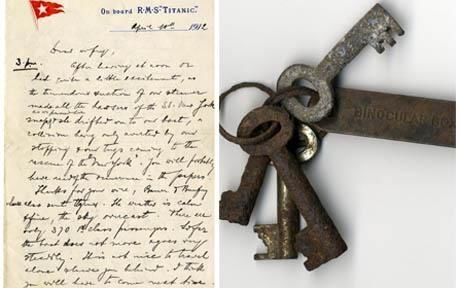 On board R.M.S. "TITANIC."
April 10th 1912
3 pm. After leaving at noon we
had quite a little excitement, as
the tremendous suction of our steamer
made all the hawsers of the SS. New York
snap & she drifted on to our boat, a
collision being only averted by our
stopping & our tugs coming to the
rescue of the "New York". You will probably
have read of the occurrence in the papers.
Thanks for your wire,
also sent theirs. The weather is calm &
fine, the sky overcast. There are
only 370 1st class passengers. So far
the boat does not move & goes very
steadily. It is not nice to travel
alone & leave you behind. I think
you will have to come next time
BINOCULAR BO